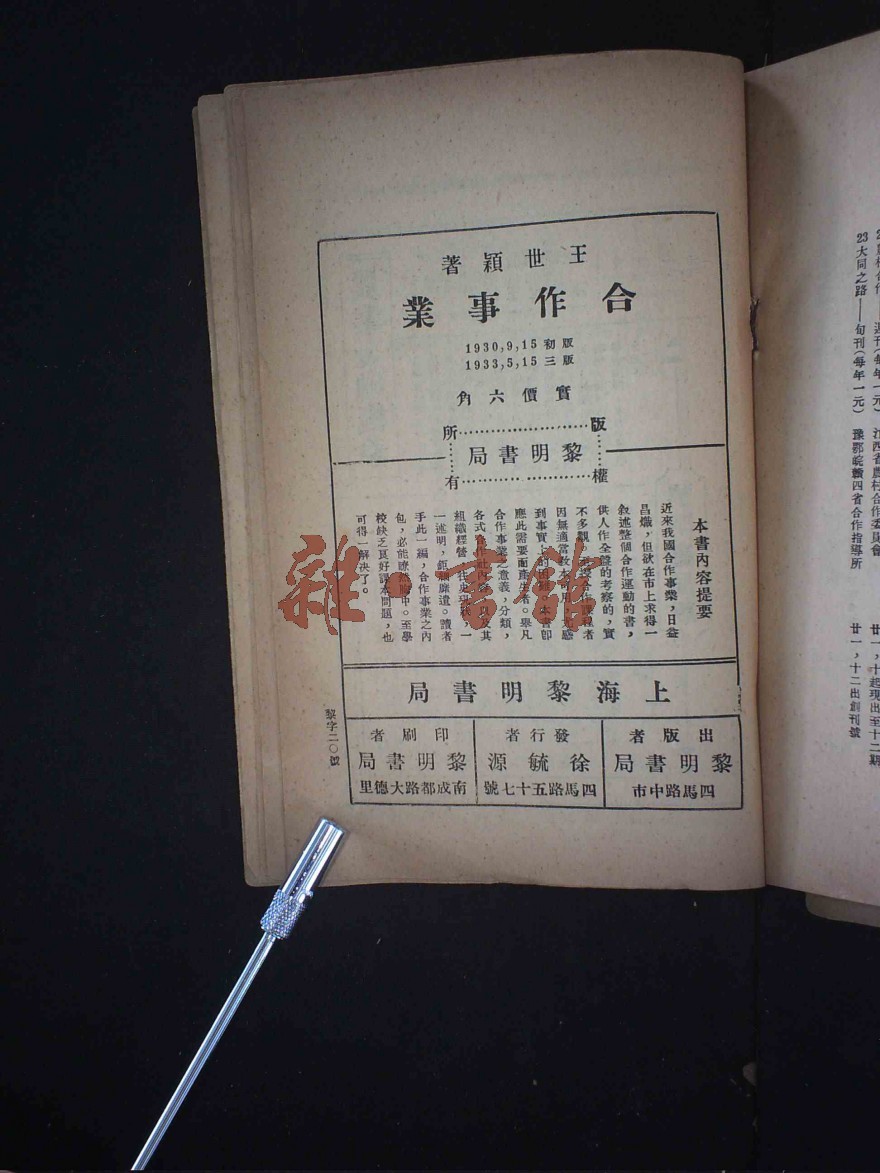 王世穎著
合作事業
1930,9,15初版
1933,5,15三版
實價六角
版權所有
黎明書局
本書內容提要
近來我國合作事業，日益
昌熾，但欲在市上求得一
敘述整個合作運動的書，
供人作全盤的考察的，實
不多觀，
因無適當教本
到事實上的困難，本書即
應此需要而產生者。舉凡
合作事業之意義，分類，
各式合作社內容，以及其
組織經營，往史現狀，一
一述明，鉅細靡遺。讀者
手此一編，合作事業之內
包，必能瞭然胸中。至學
校缺乏良好課本問題，也
可得一解決了。
上海黎明書局
出版者
黎明書局
四馬路中市
發行者
徐毓源
四馬路五十七號
印刷者
黎明書局
南成都路大德里
黎字二〇號
23大同之路——旬刊(每年一元) 豫鄂皖贛四省合作指導所 廿一,十二出創刊號
雜·書館